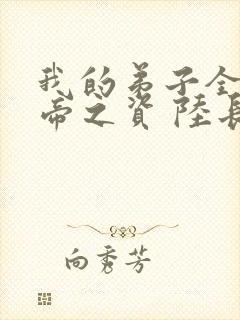 我的弟子全
帝之資 陸長
向秀芳